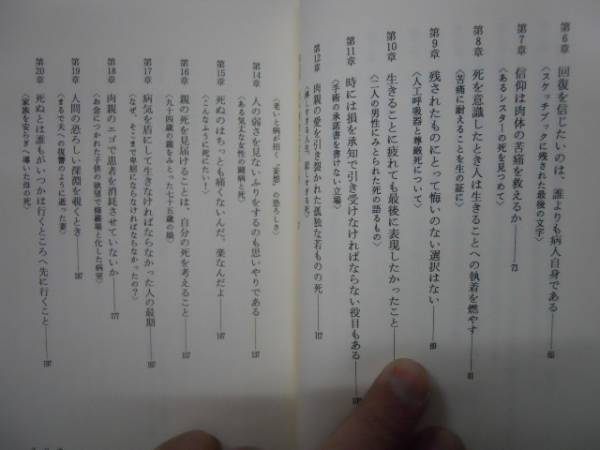 第6章 回復を信じたいのは、誰よりも病人自身である
〈スケッチブックに残された最後の文字〉
第7章 信仰は肉体の苦痛を救えるか 73
〈あるシスターの死を見つめて〉
第8章 死を意識したとき人は生きることへの執着を燃やす 81
〈苦痛に耐えることを生の証に〉
第9章 残されたものにとって悔いのない選択はない 89
〈人工呼吸器と尊厳死について〉
第10章 生きることに疲れても最後に表現したかったこと
〈二人の男性にみとられた死の語るもの〉
第11章 時には損を承知で引き受けなければならない役目もある
〈手術の承諾書を書けない立場〉
第12章 肉親の愛を引き裂かれた孤独な若ものの死 117
〈老いと病が招く「妄想」の恐ろしさ〉
第14章 人の弱さを見ないふりをするのも思いやりである 137
〈ある気丈な女性の闘病と死〉
第15章 死ぬのはちっとも痛くないんだ、楽なんだよ 147
〈こんなふうに死にたい！〉
第16章 親の死を見届けることは、自分の死を考えること 157
〈九十四歳の親をみとった七十五歳の娘〉
第17章 病気を盾にして生きなければならなかった人の最期 167
〈なぜ、そこまで卑屈にならなければならなかったの？〉
第18章 肉親のエゴで患者を消耗させていないか 177
〈お金につかれた子供の欲望で修羅場と化した病室〉
第19章 人間の恐ろしい深淵を覗くとき 187
〈まるで夫への復讐のように逝った妻〉
第20章 死ぬとは誰もがいつかは行くところへ先に行くこと 197
〈家族を安らぎへ導いた母の死〉